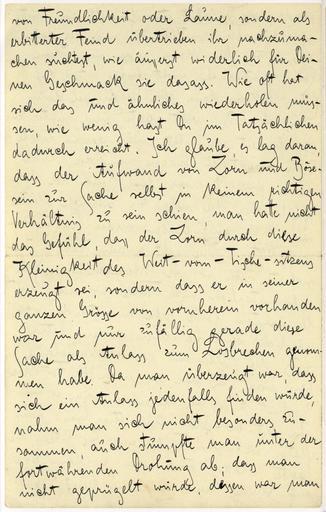 von Freundlichkeit oder Laune, sondern als
erbitterter Feind übertrieben ihr nachzuma-
chen suchtest, wie äusserst widerlich für Dei-
nen Geschmack sie dasass. Wie oft hat
sich das und ähnliches wiederholen müs-
sen, wie wenig hast Du im Tatsächlichen
dadurch erreicht. Ich glaube, es lag daran,
dass der Aufwand von Zorn und Böse-
sein zur Sache selbst in keinem richtigen
Verhältnis zu sein schien, man hatte nicht
das Gefühl, dass der Zorn durch diese
Kleinigkeit des Weit-vom-Tische-sitzens
erzeugt sei, sondern dass er in seiner
ganzen Grösse von vornherein vorhanden
war und nur zufällig gerade diese
Sache als Anlass zum Losbrechen genom-
men habe. Da man überzeugt war, dass
sich ein Anlass jedenfalls finden würde,
nahm man sich nicht besonders zu-
sammen, auch stumpfte man unter der
fortwährenden Drohung ab; dass man
nicht geprügelt würde, dessen war man